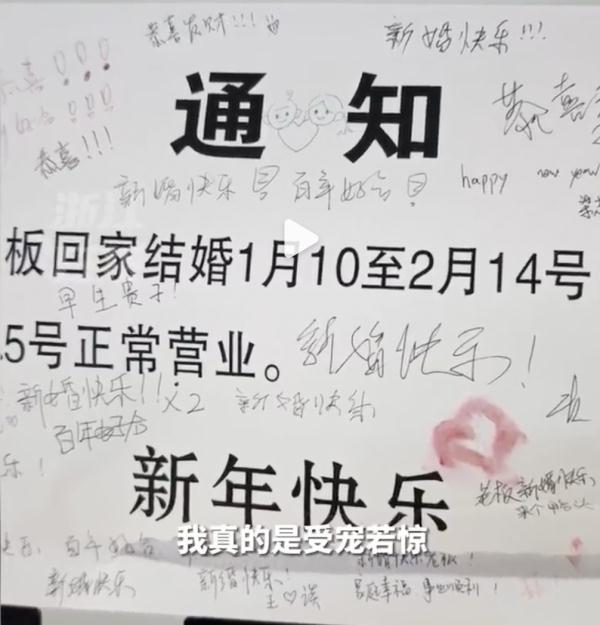 恭喜发财!!!
新婚快乐!!!
恭喜!!!
通知
恭喜!!!
新婚快乐!百年好合!
happy new year
浙江
板回家结婚1月10至2月14号
早生贵子!
5号正常营业。
新婚快乐!
新婚快乐!!x2
新婚快乐
百年好合
乐!
新年快乐
老板新婚快乐
我真的是受宠若惊
百年好合
新婚快乐老板!
新婚快乐
新婚快乐!
家庭幸福 事业顺利!